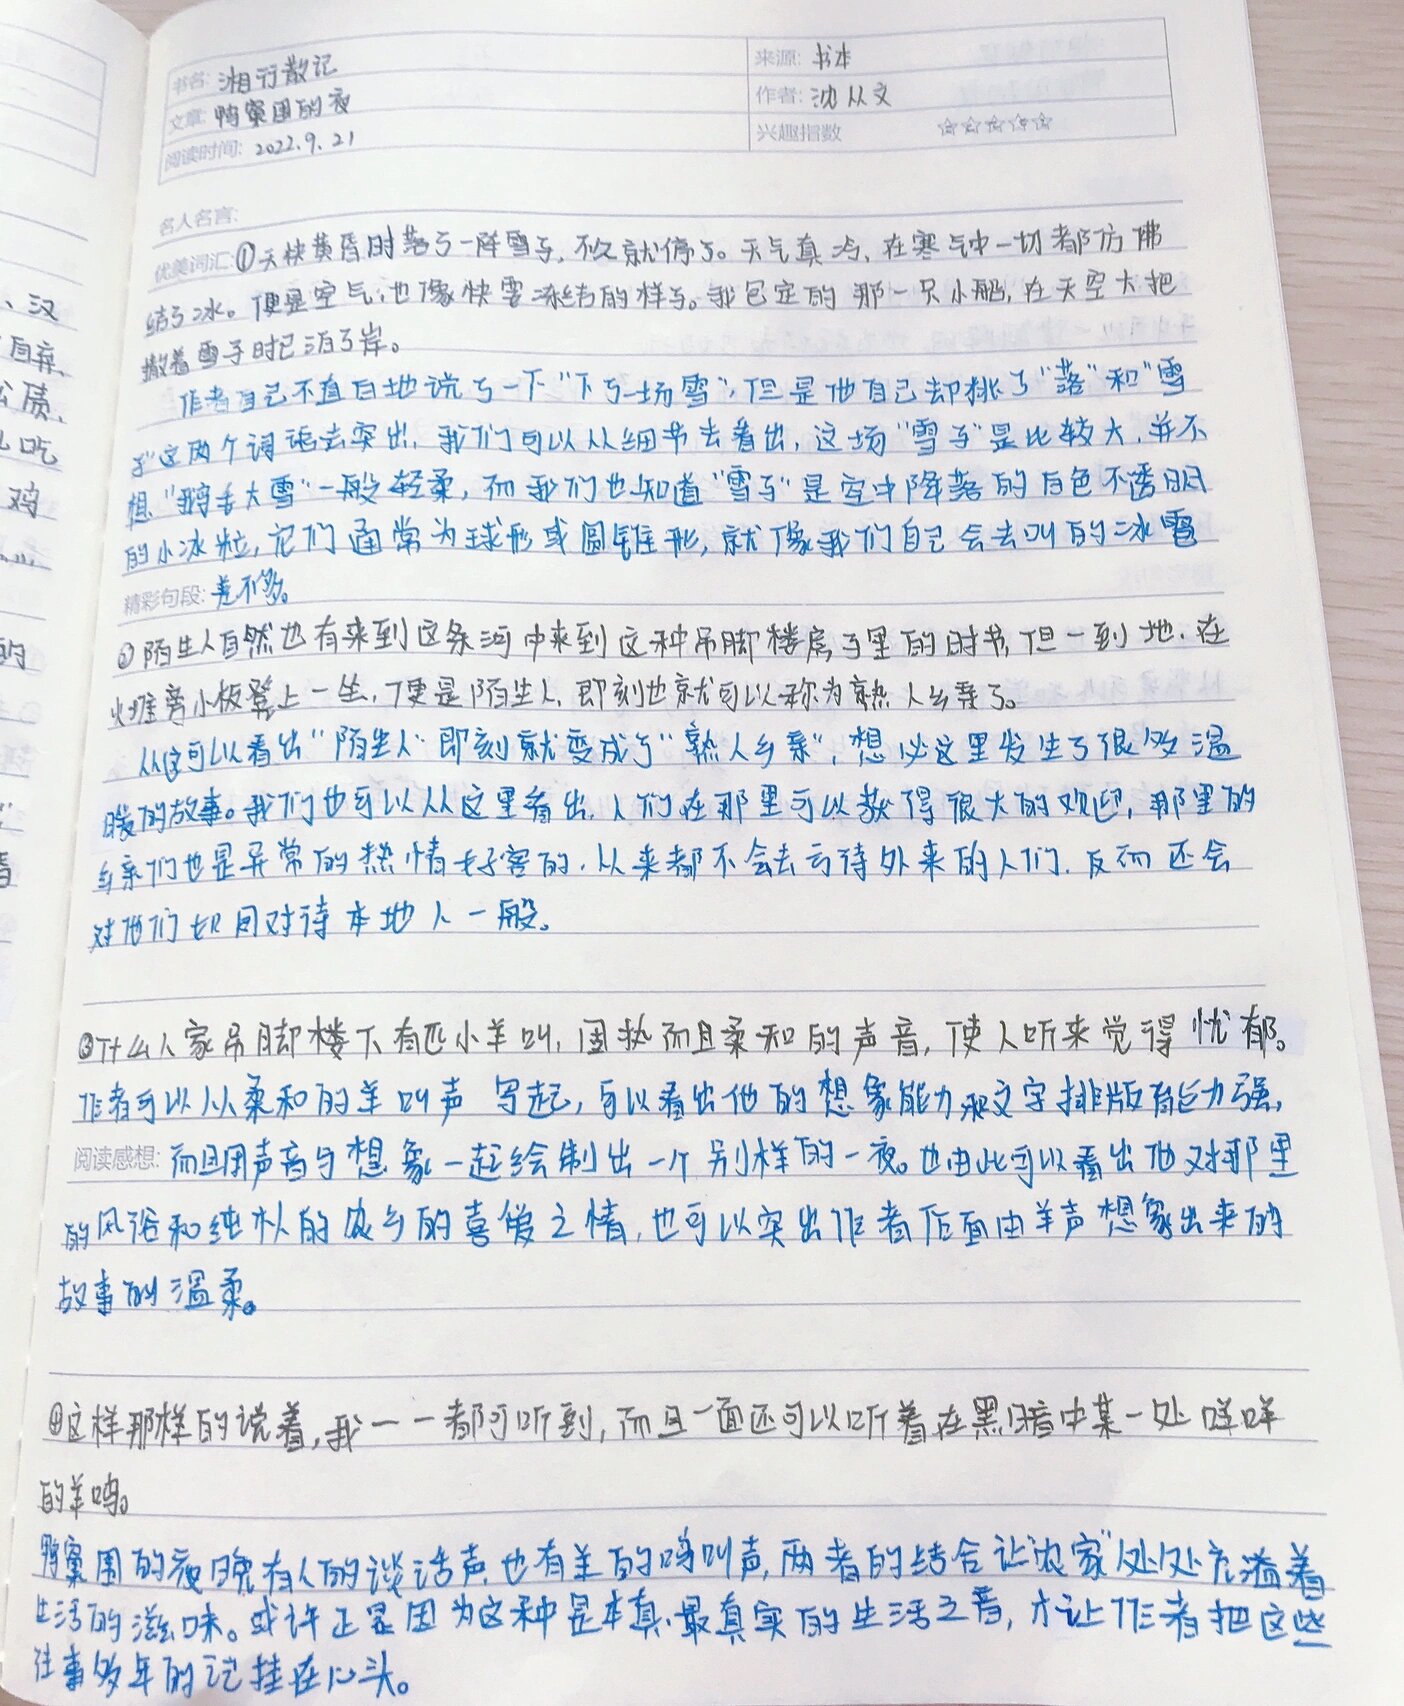 书名: 湘行散记
来源: 书本
文章: 鸭窠围的夜
作者: 沈从文
阅读时间: 2022.9.21
兴趣指数 ☆☆☆☆☆
名人名言:
优美词汇: ①天快黄昏时落了一阵雪子,不久就停了。天气真冷,在寒气中一切都仿佛
结了冰。便是空气,也像快要冻结的样子。我包定的那一只小船,在天空大把
撒着雪子时已泊了岸。
作者自己不直白地说了一下“下了一场雪”,但是他自己却挑了“落”和“雪
子”这两个词语去突出,我们可以从细节去看出,这场“雪子”是比较大,并不
想“鹅毛大雪”一般轻柔,而我们也知道“雪子”是空中降落的白色不透明
的小冰粒,它们通常为球形或圆锥形,就像我们自己会去叫的冰雹
精彩句段: 差不多。
②陌生人自然也有来到这条河中来到这种吊脚楼房子里的时节,但一到地,在
火堆旁小板凳上一坐,便是陌生人,即刻也就可以称为熟人乡亲了。
从这可以看出“陌生人”即刻就变成了“熟人乡亲”,想必这里发生了很多温
暖的故事。我们也可以从这里看出,人们在那里可以获得很大的欢迎,那里的
乡亲们也是异常的热情好客的,从来都不会去亏待外来的人们,反而还会
对他们如同对待本地人一般。
③什么人家吊脚楼下有匹小羊叫,固执而且柔和的声音,使人听来觉得忧郁。
作者可以从柔和的羊叫声写起,可以看出他的想象能力和文字排版能力强,
阅读感想: 而且用声音与想象一起绘制出一个别样的一夜。也由此可以看出他对那里
的风俗和纯朴的故乡的喜爱之情,也可以突出作者后面由羊声想象出来的
故事的温柔。
④这样那样的说着,我一一都可听到,而且一面还可以听着在黑暗中某一处咩咩
的羊鸣。
鸭窠围的夜晚有人的谈话声,也有羊的鸣叫声,两者的结合让“农家”处处充溢着
生活的滋味。或许正是因为这种是本真,最真实的生活之音,才让作者把这些
往事多年的记挂在心头。